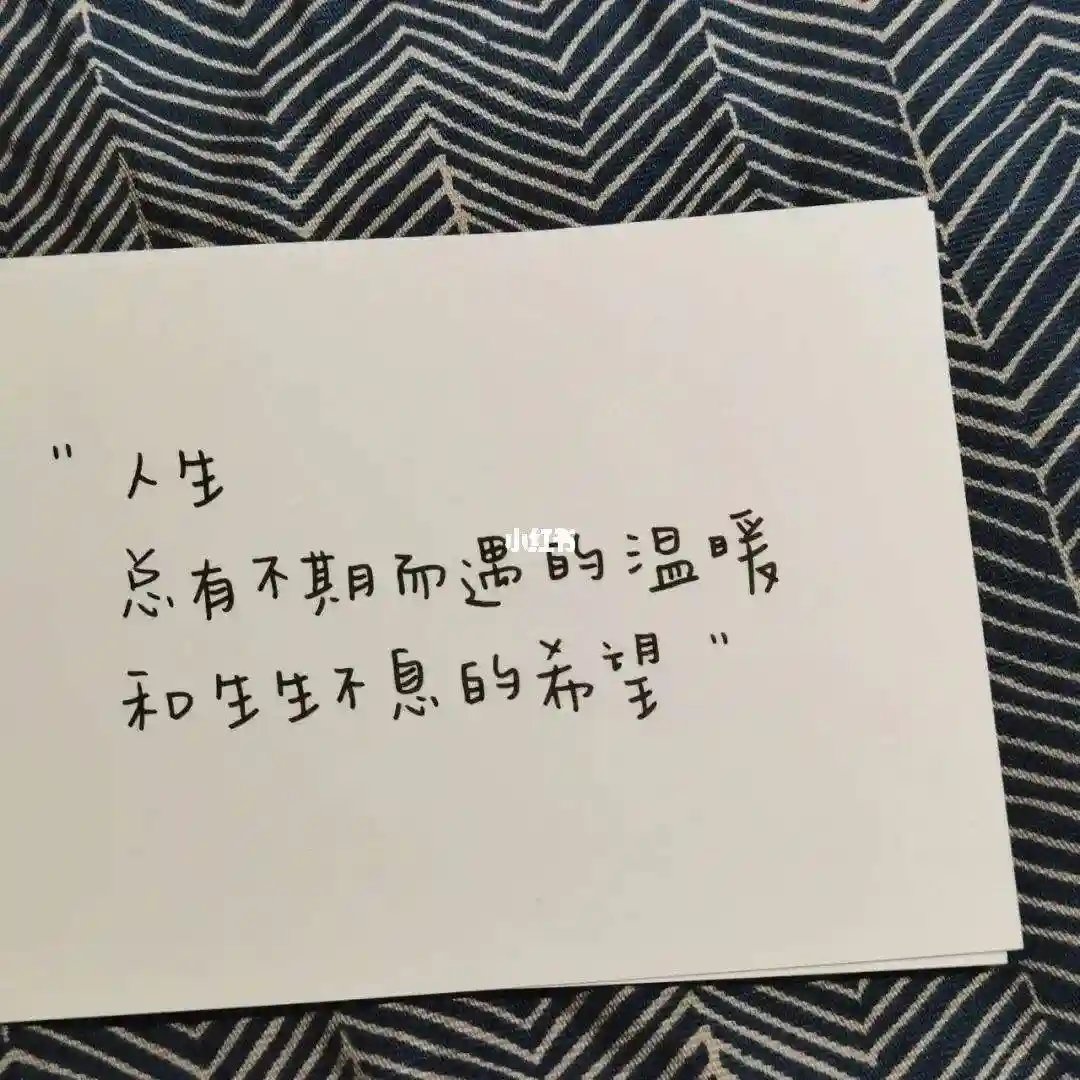 "人生
总有不期而遇的温暖
和生生不息的希望"
小红书